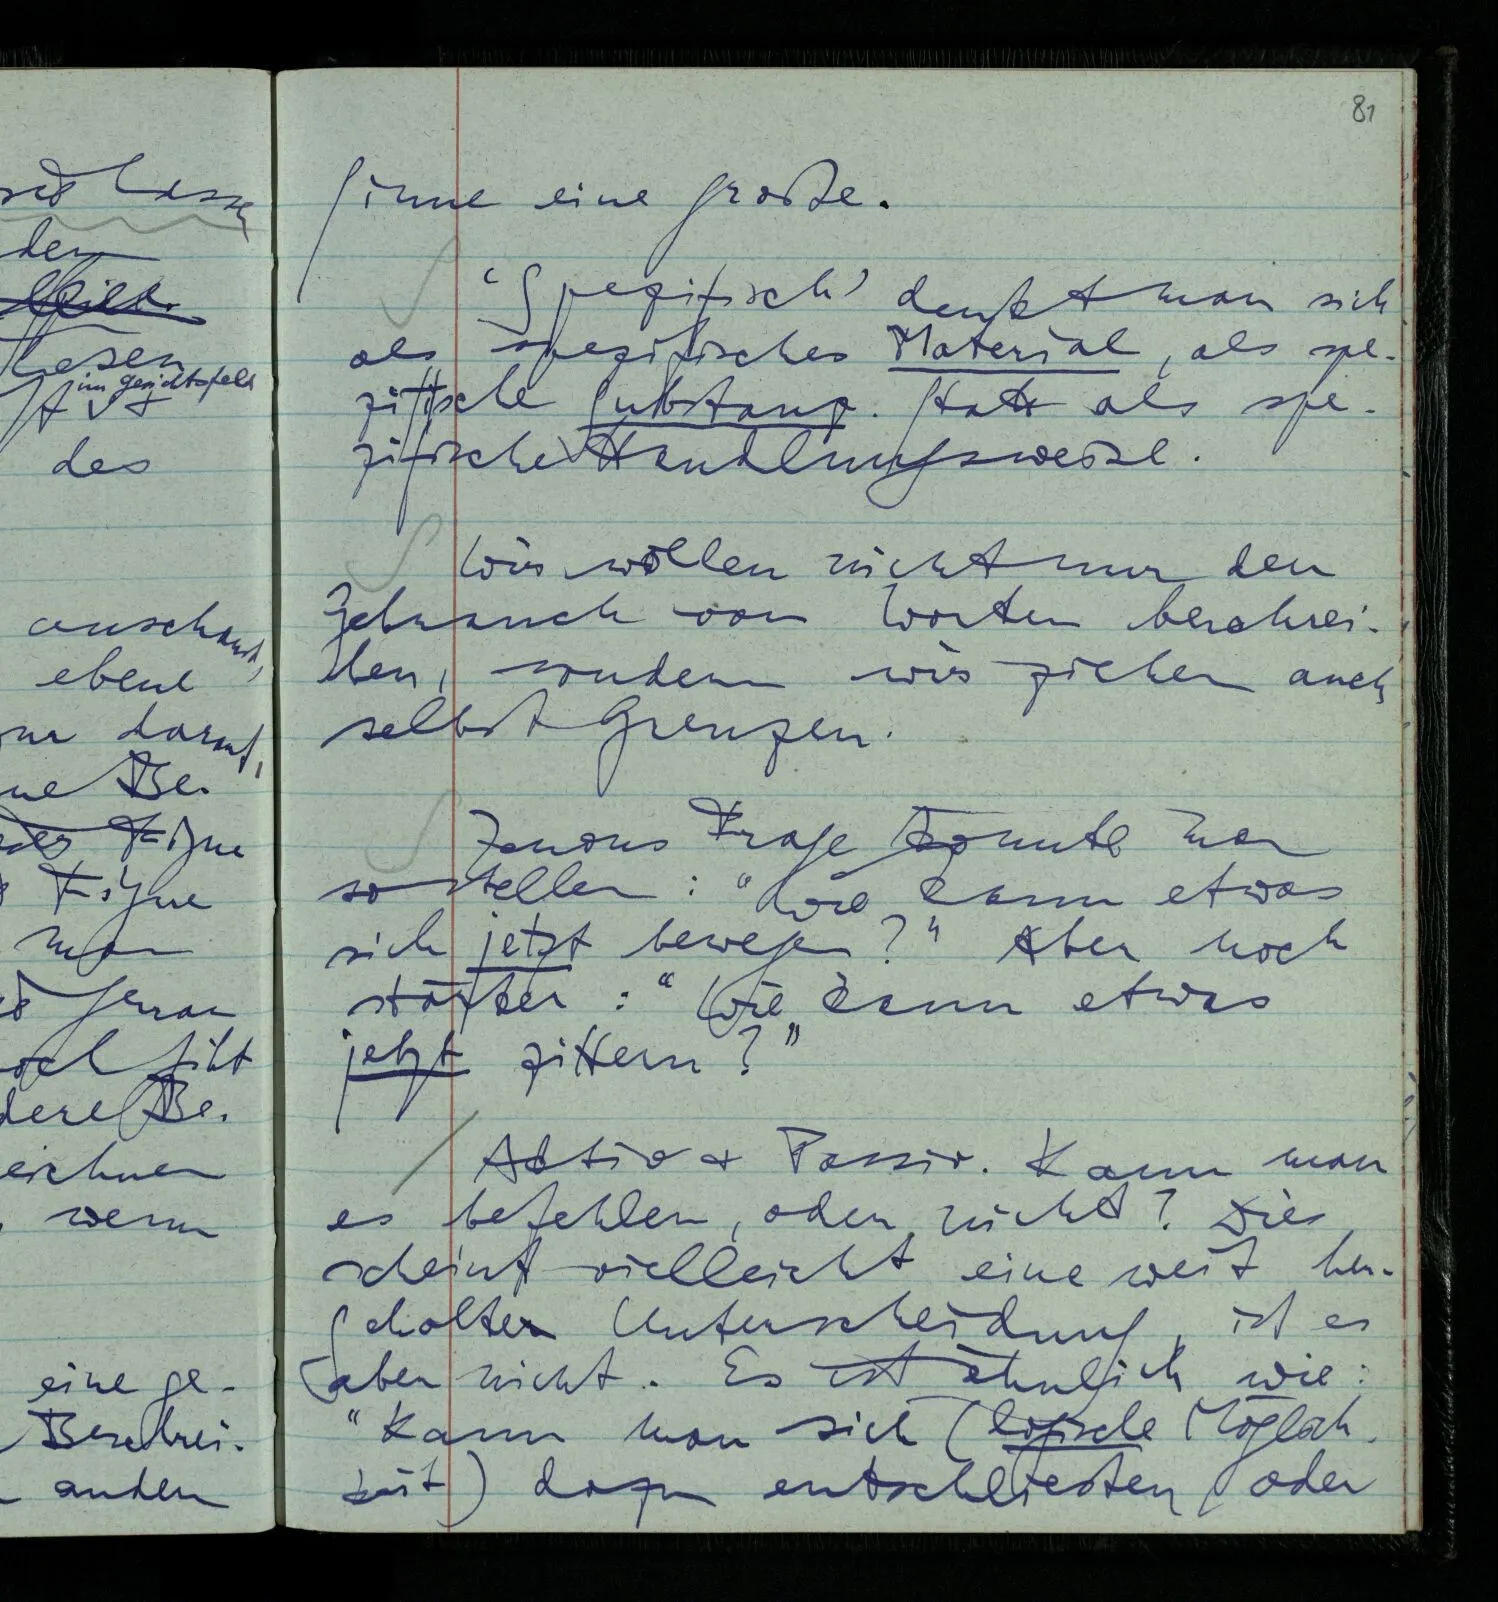 81
Sinne eine große.
‘Spezifisch’ denkt man sich
als spezifisches Material, als spe-
zifische Substanz. Statt als spe-
zifische Handlungsweise.
Wir wollen nicht nur den
Gebrauch von Worten beschrei-
ben, sondern wir ziehen auch
selbst Grenzen.
Zenons Frage könnte man
so stellen: “Wie kann etwas
sich jetzt bewegen?” Aber noch
stärker: “Wie kann etwas
jetzt zittern?”
Aktiv & Passiv. Kann man
es befehlen, oder nicht? Dies
scheint vielleicht eine weit her-
geholte Unterscheidung, ist es
aber nicht. Es ist ähnlich wie:
“Kann man sich (logische Möglich-
keit) dazu entschließen oder
den
Lesen
im Gesichtsfeld
des
anschaut,
ebene
nur darauf,
Be-
Figur
Figur
man
genau
gibt
Be-
wenn
eine ge-
Beschrei-
andern